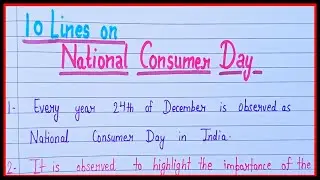 10 Lines on
National Consumer Day
1- Every year 24th of December is observed as
National Consumer Day in India.
2- It is observed to highlight the importance of the